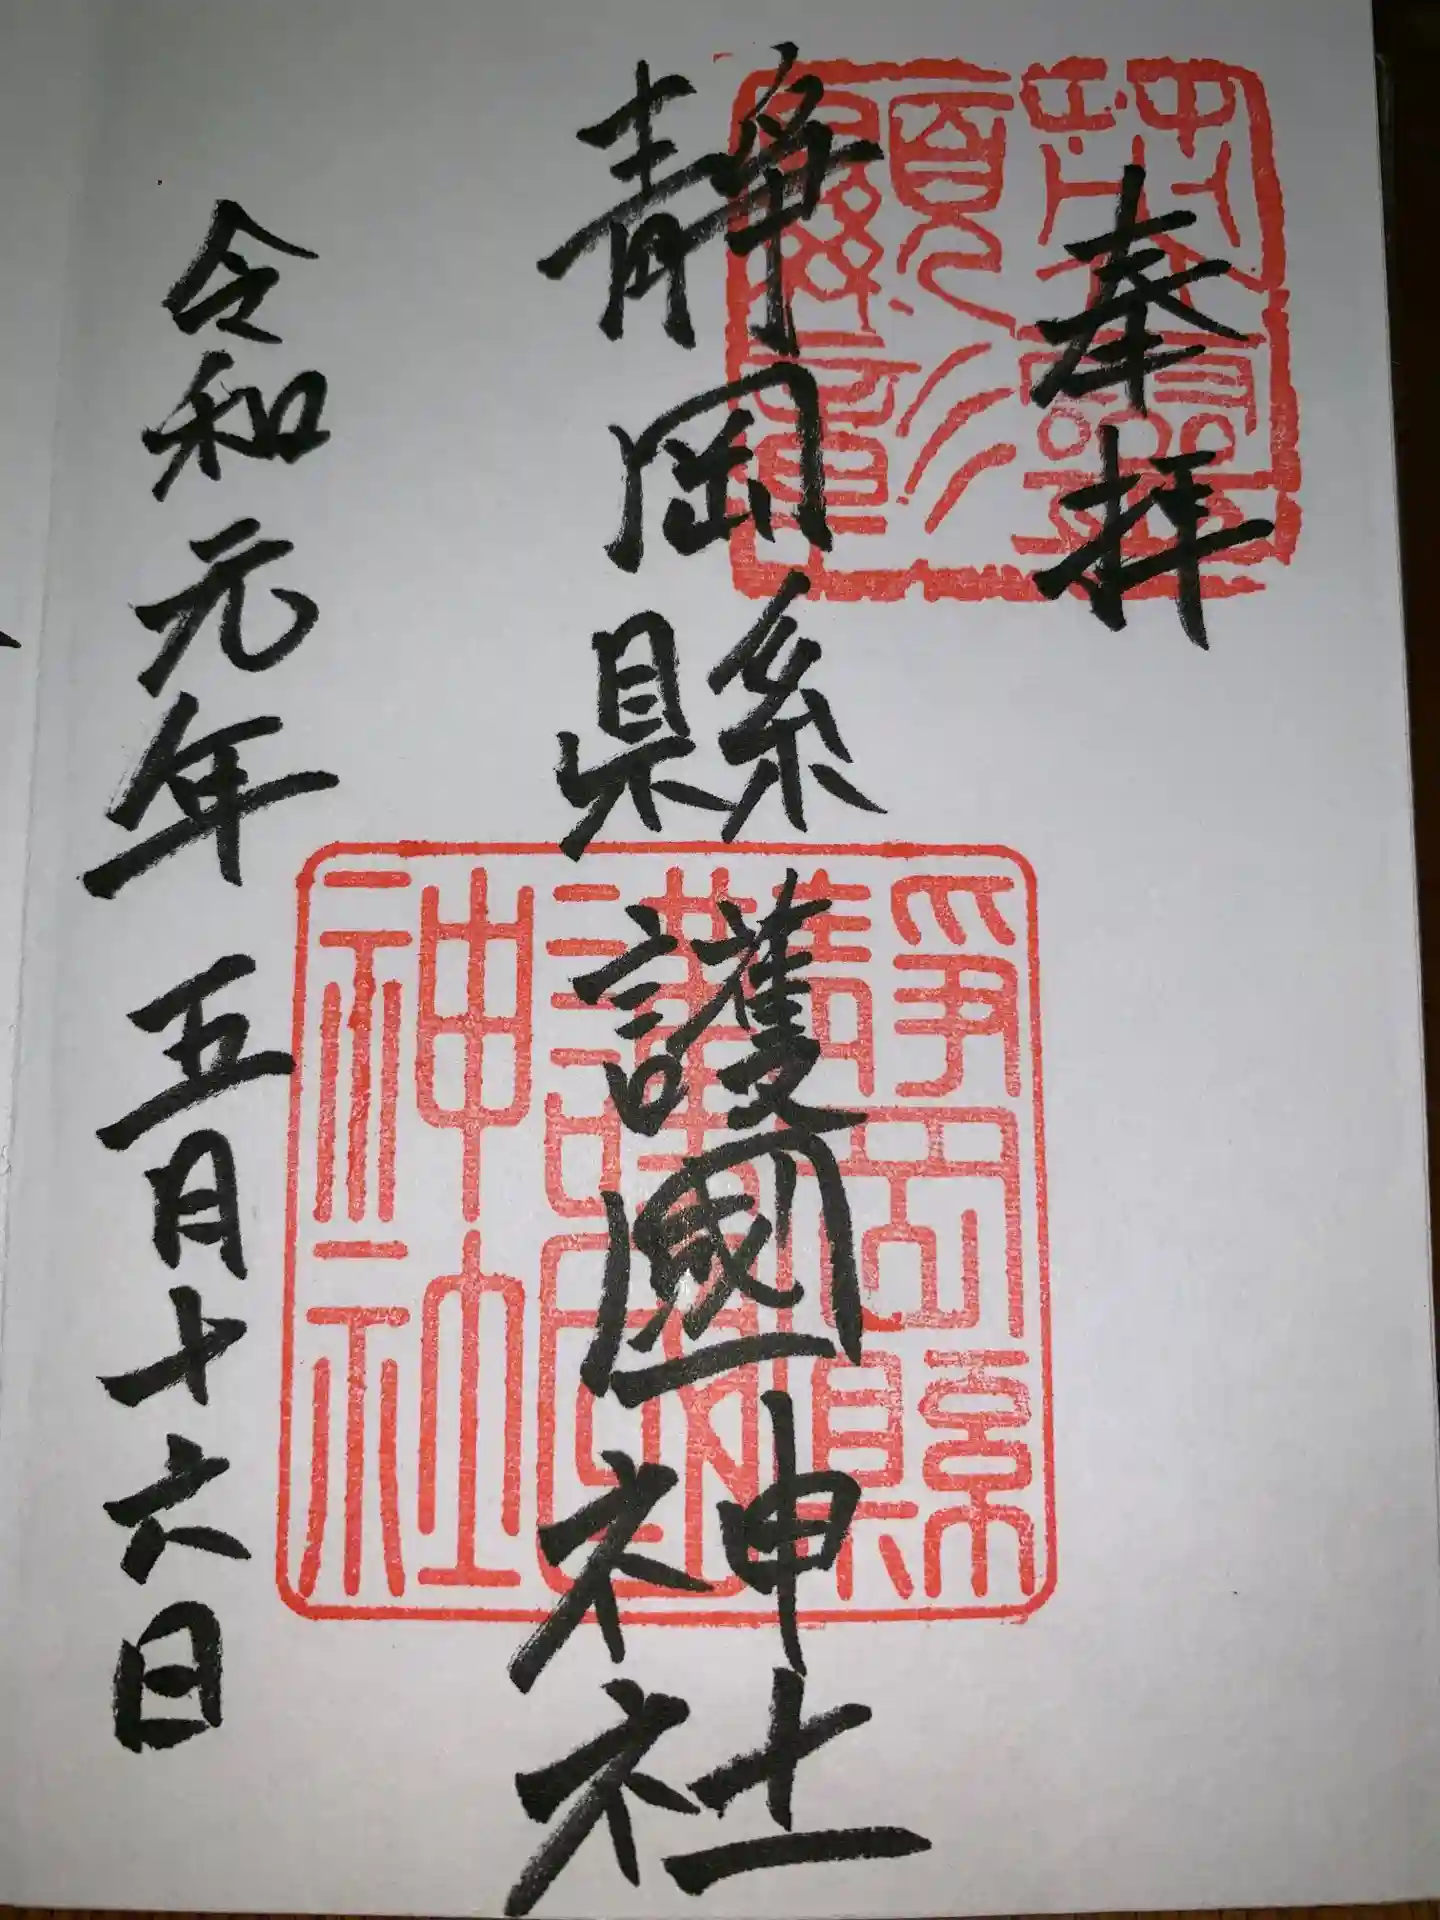 奉拝
靜岡縣護國神社
令和元年五月十六日
靜岡縣
護國
神社